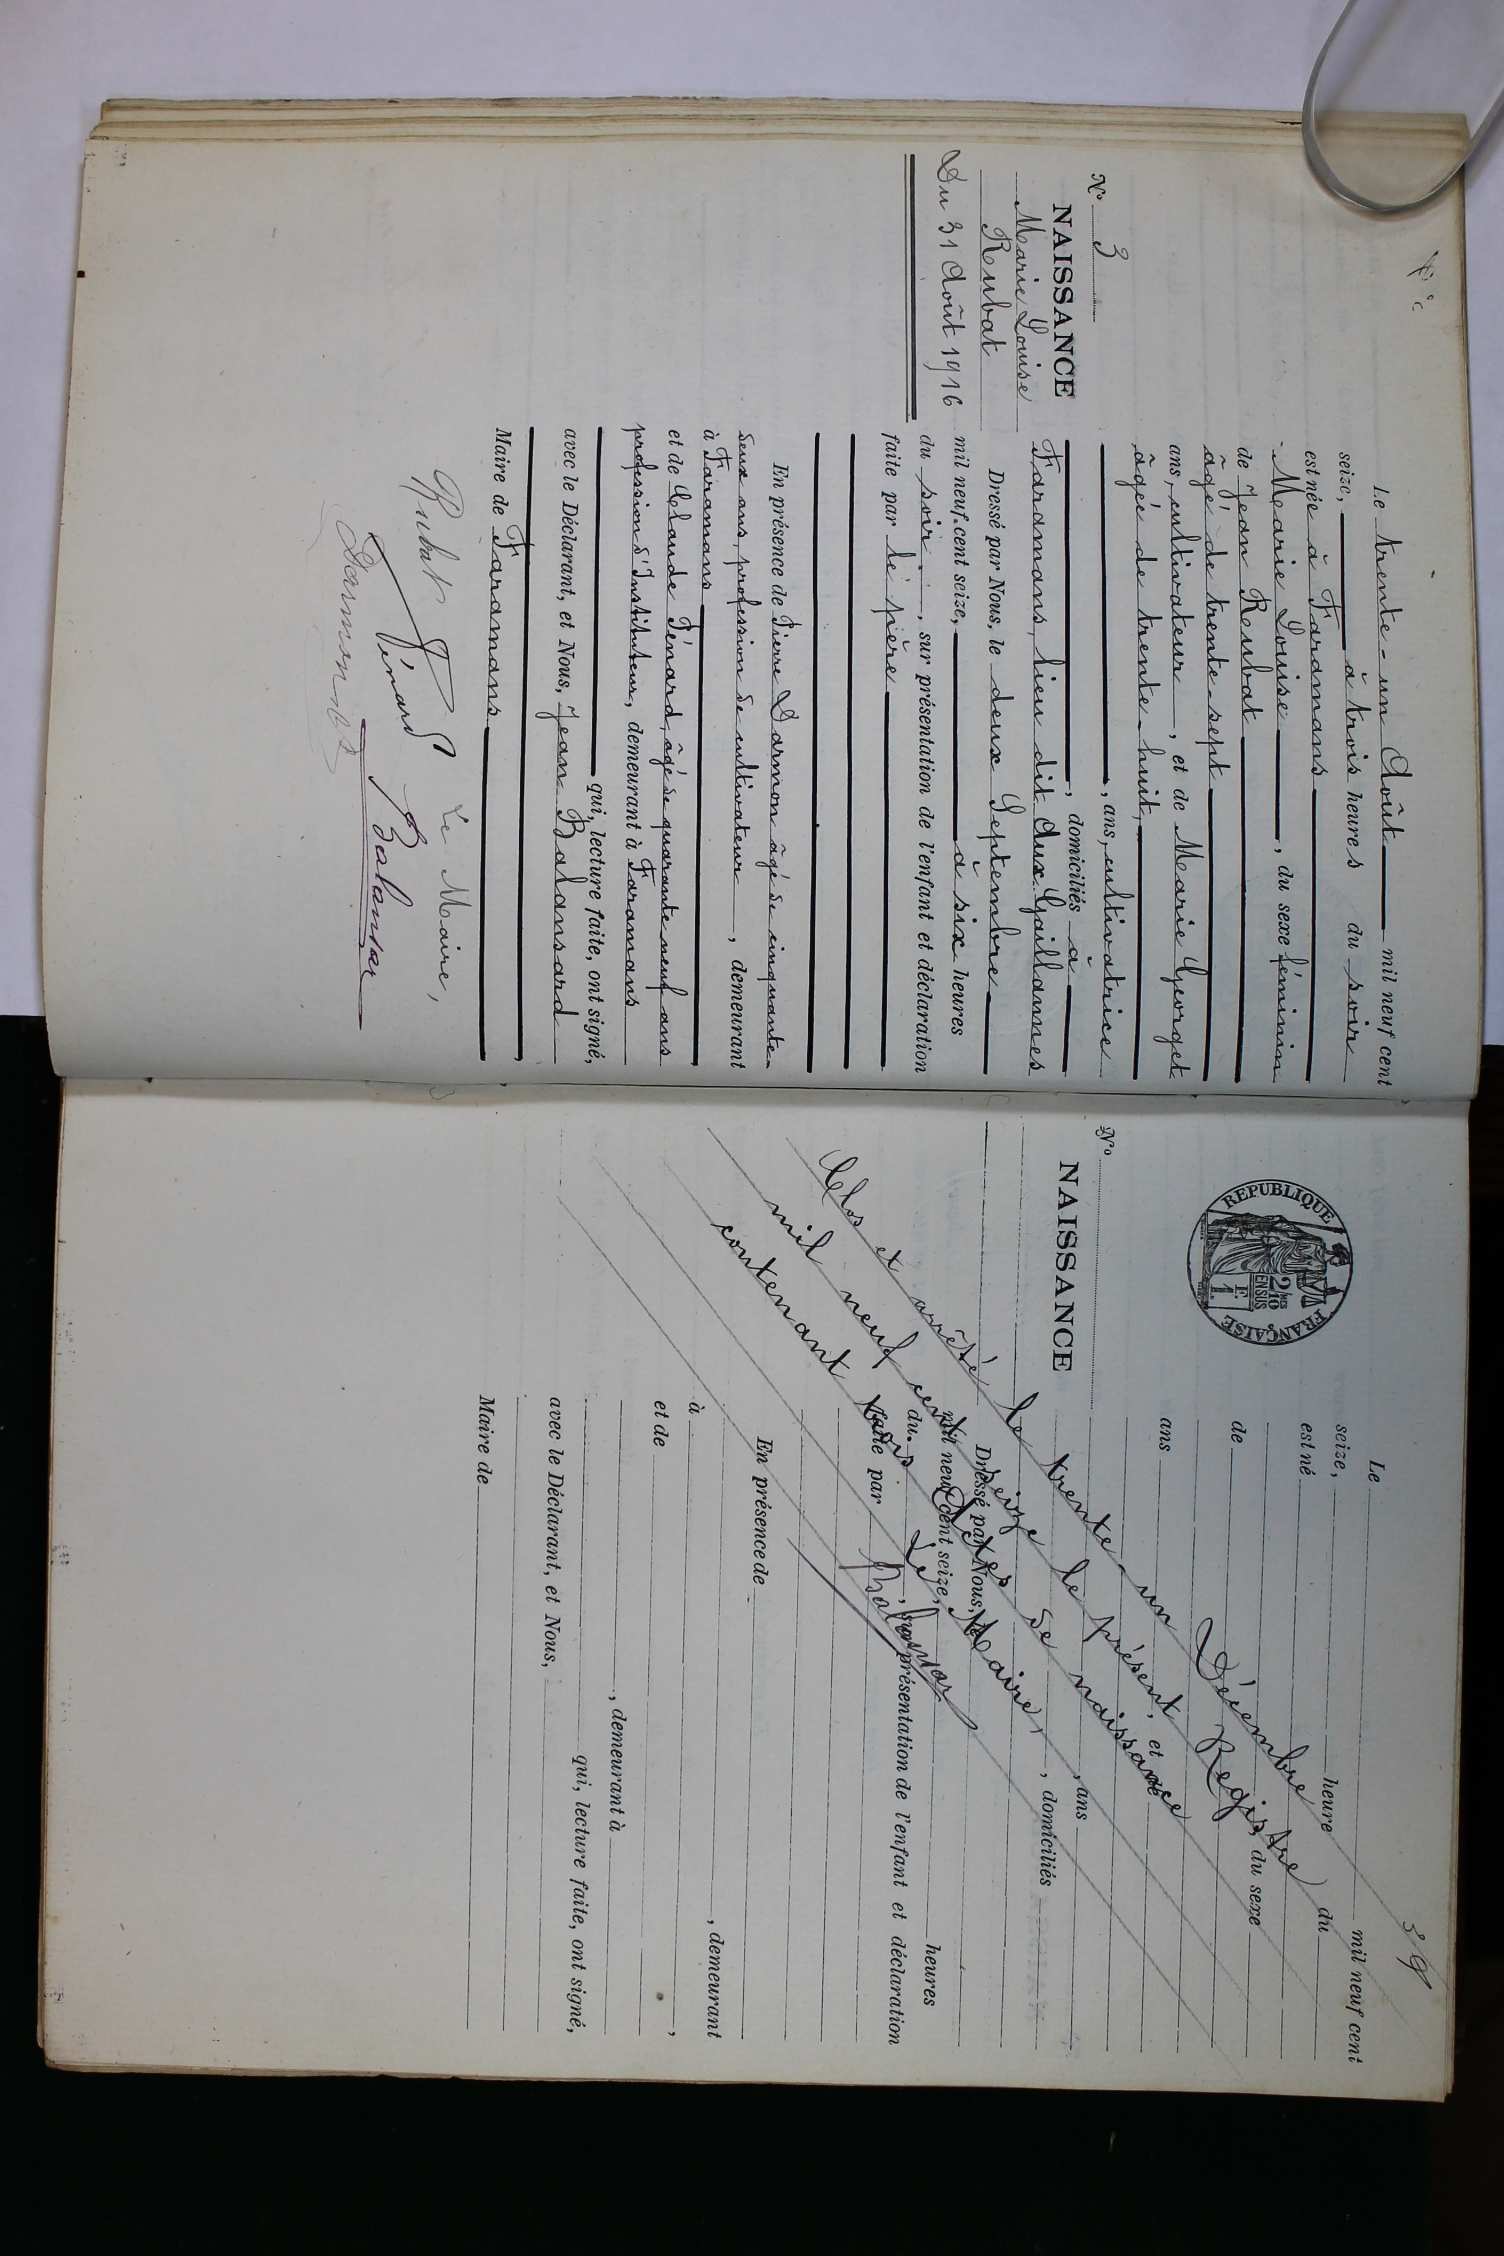 N° 3
NAISSANCE
Marie Louise
Rubat
Du 31 Août 1916
Le trente-un Août mil neuf cent
seize, à trois heures du soir
est née à Faramans
Marie Louise, du sexe féminin
de Jean Rubat
âgé de trente-sept
ans, cultivateur, et de Marie Georget
âgée de trente-huit,
, ans, cultivatrice
, domiciliés à
Faramans, lieu dit Aux Gaillannes
Dressé par Nous, le deux Septembre
mil neuf cent seize, à six heures
du soir, sur présentation de l'enfant et déclaration
faite par le père
En présence de Pierre Darmon âgé de cinquante-
deux ans, profession de cultivateur, demeurant
à Faramans
et de Claude Pénard, âgé de quarante neuf ans
profession d'Instituteur, demeurant à Faramans
qui, lecture faite, ont signé,
avec le Déclarant, et Nous, Jean Balansard
,
Maire de Faramans
Le Maire,
Rubat Pénard
39
REPUBLIQUE FRANÇAISE
2/10 EN SUS
1 F.
N°
NAISSANCE
Le mil neuf cent
seize, heure du
est né
, du sexe
de
ans, et de
, ans
, domiciliés
Dressé par Nous, le
mil neuf cent seize, heures
du, sur présentation de l'enfant et déclaration
faite par
En présence de
, demeurant
à
et de,
, demeurant à
qui, lecture faite, ont signé,
avec le Déclarant, et Nous,
Maire de
Clos et arrêté le trente-un Décembre
mil neuf cent seize le présent Registre
contenant trois Actes de naissance
Le Maire,